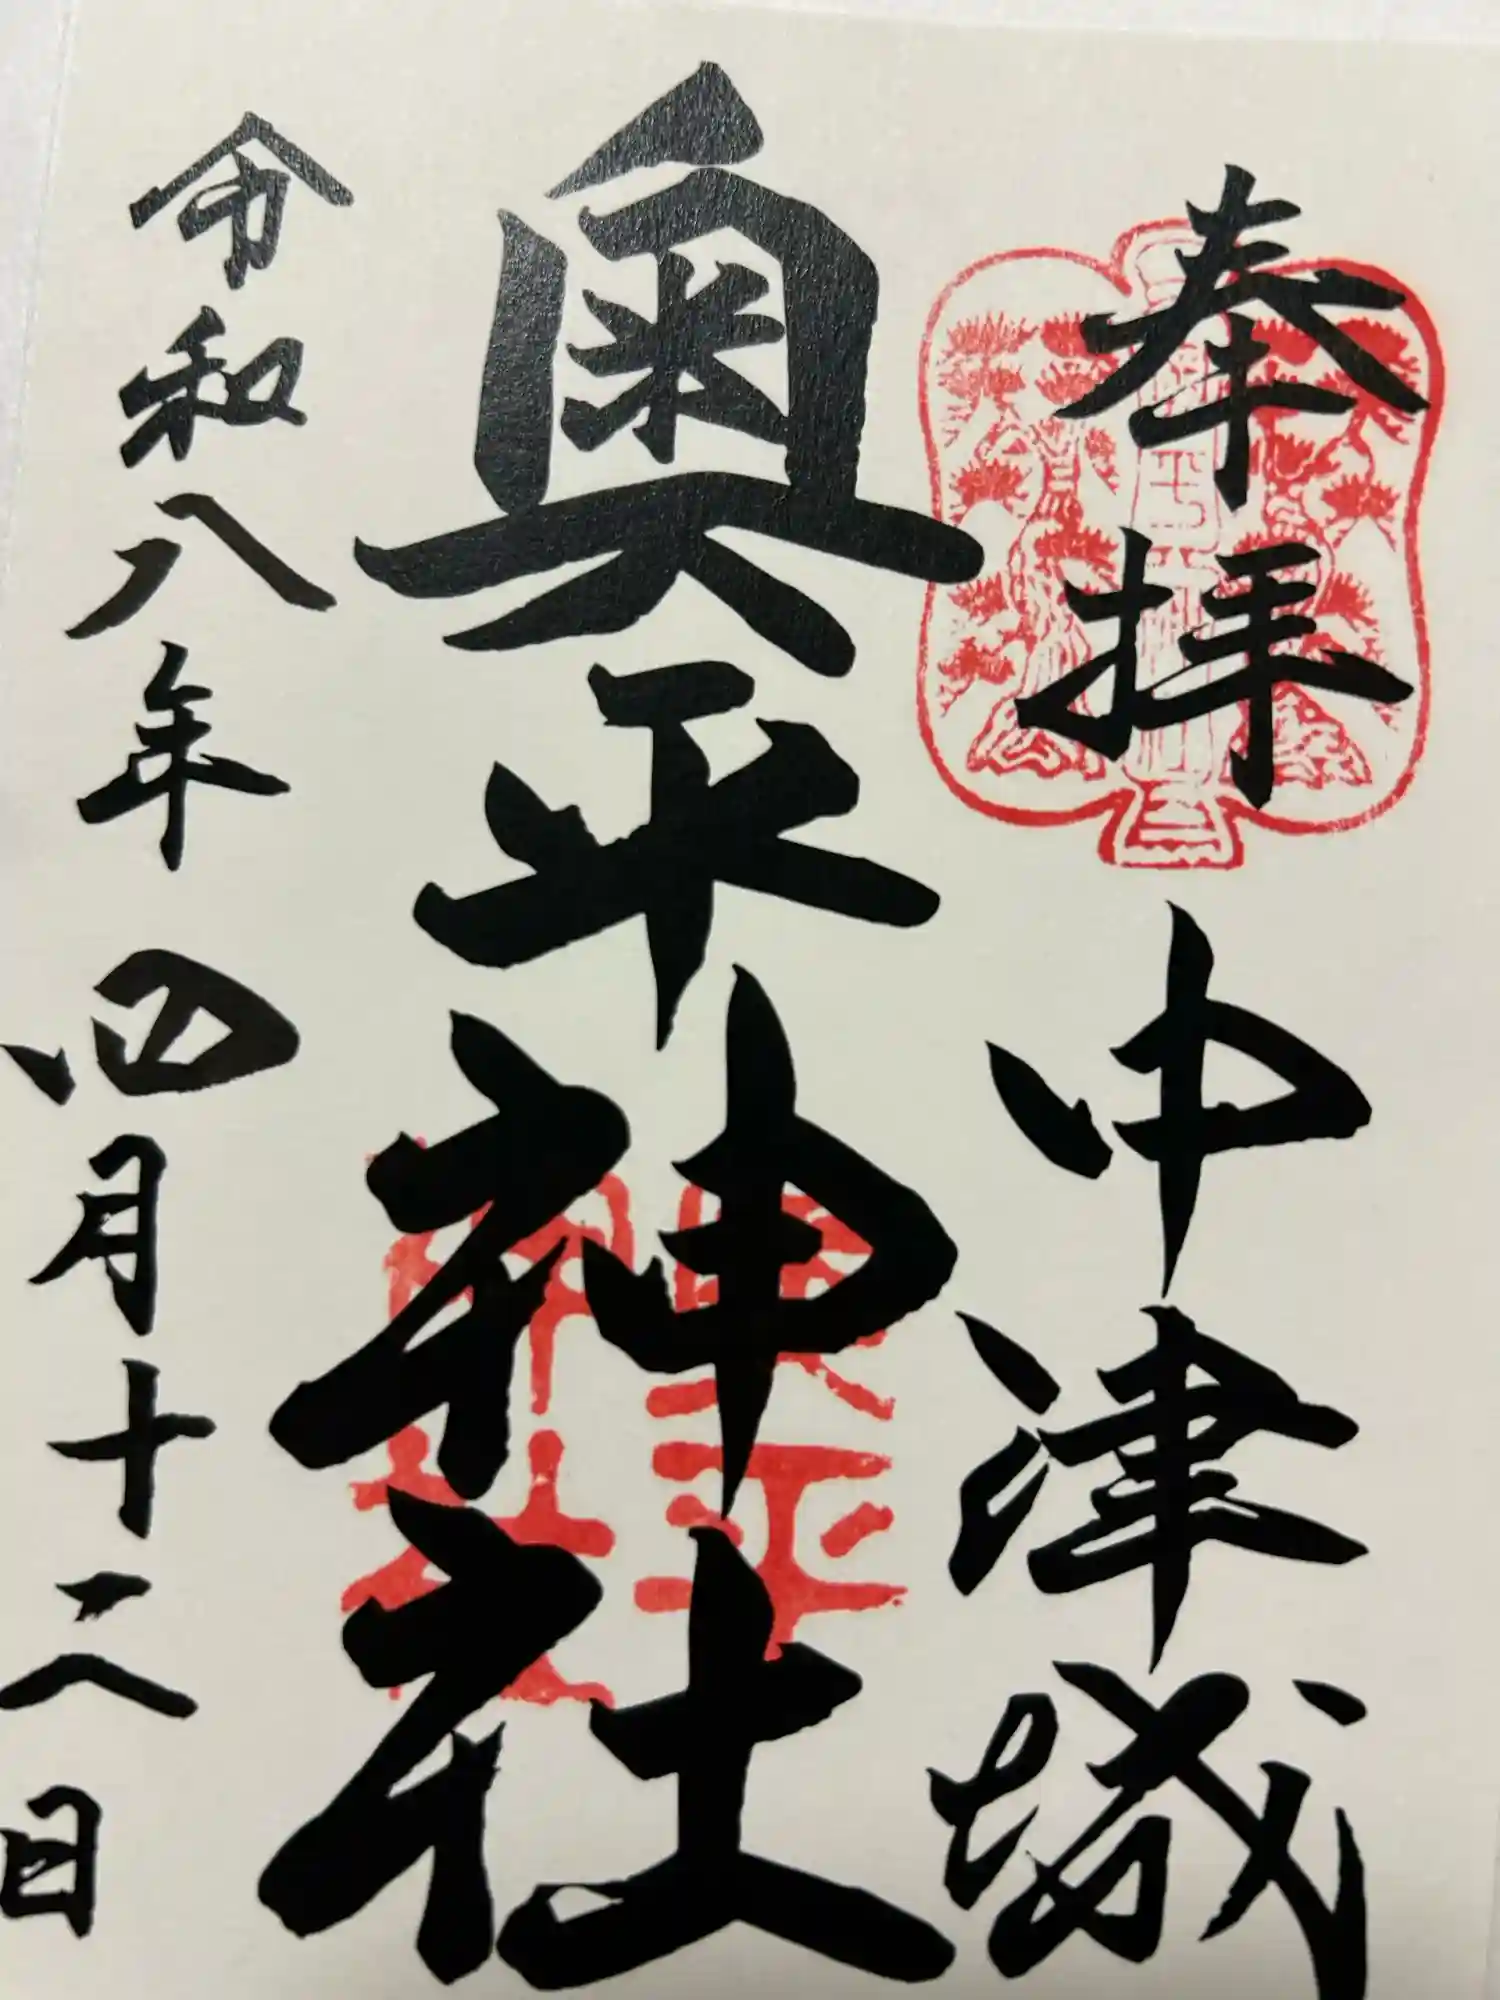 奉拝
中津城
奥平神社
令和八年四月十二八日